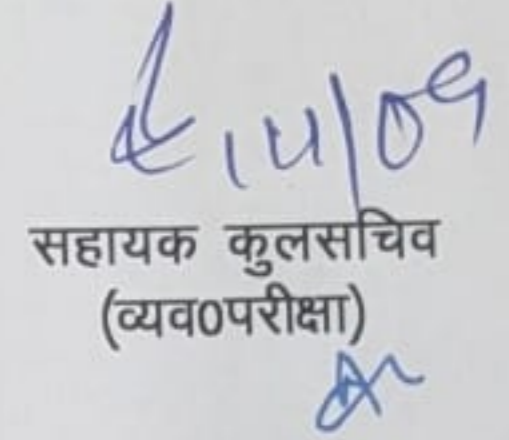 14/09
सहायक कुलसचिव
(व्यव0परीक्षा)